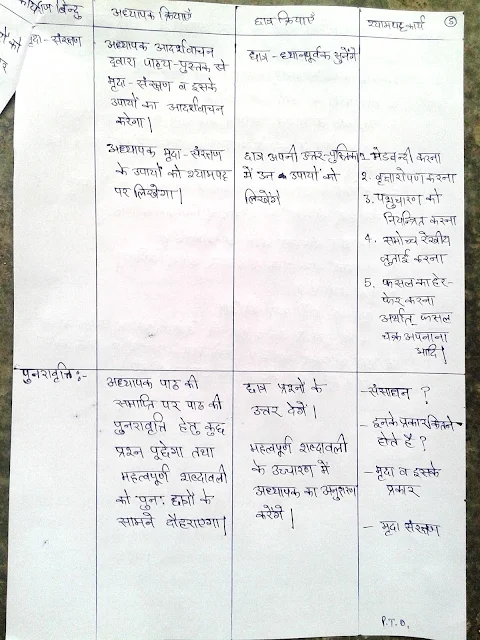 शिक्षण बिन्दु
अध्यापक क्रियाएँ
छात्र क्रियाएँ
श्यामपट्ट कार्य
5
मृदा - संरक्षण
अध्यापक आदर्शवाचन
द्वारा पाठ्य-पुस्तक से
मृदा - संरक्षण व इसके
उपायों का आदर्शवाचन
करेगा।
छात्र - ध्यानपूर्वक सुनेंगे
अध्यापक मृदा - संरक्षण
के उपायों को श्यामपट्ट
पर लिखेगा।
छात्र अपनी उत्तर-पुस्तिका
में उन उपायों को
लिखेंगे
1. मेडबन्दी करना
2. वृक्षारोपण करना
3. पशुचारण को
नियन्त्रित करना
4. समोच्च रेखीय
जुताई करना
5. फसल का हेर-
फेर करना
अर्थात् फसल
चक्र अपनाना
आदि।
पुनरावृत्ति :-
अध्यापक पाठ की
समाप्ति पर पाठ की
पुनरावृत्ति हेतु कुछ
प्रश्न पूछेगा तथा
महत्वपूर्ण शब्दावली
को पुनः छात्रों के
सामने दौहराएगा।
छात्र प्रश्नों के
उत्तर देगें।
महत्वपूर्ण शब्दावली
के उच्चारण में
अध्यापक का अनुसरण
करेंगे।
- संसाधन ?
- इनके प्रकार कितने
होते है ?
- मृदा व इसके
प्रकार
- मृदा संरक्षण
P.T.O.